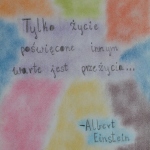 Tylko życie
poświęcone innym
warte jest przeżycia...
-Albert
Einstein